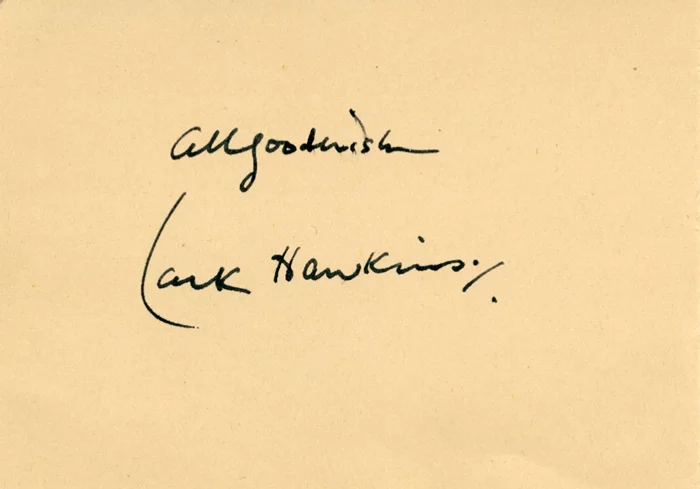 All good wishes
Jack Hawkins.